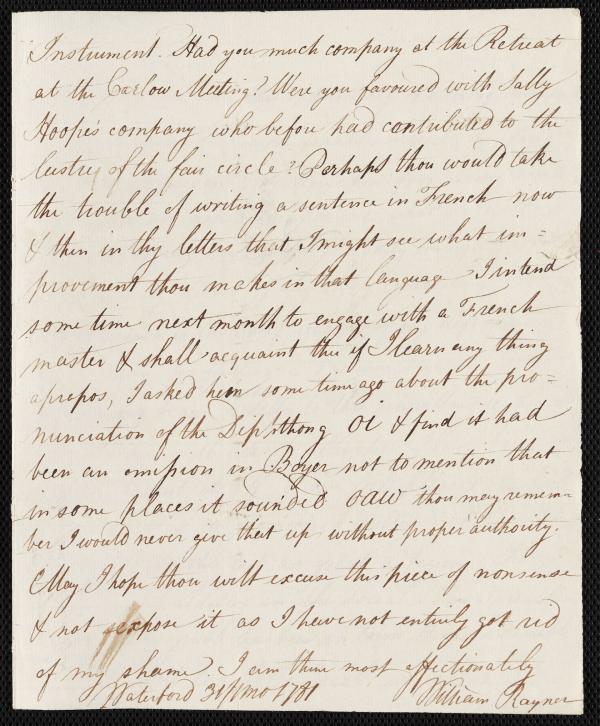 Instrument. Had you much company at the Retreat
at the Carlow Meeting? Were you favoured with Sally
Hoope's company who before had contributed to the
lustre of the fair circle? Perhaps thou would take
the trouble of writing a sentence in French now
& then in thy letters that I might see what im=
provement thou makes in that language I intend
some time next month to engage with a French
master & shall acquaint thee if I learn any thing
apropos, I asked him some time ago about the pro=
nunciation of the Diphthong Oi & find it had
been an omission in Boyer not to mention that
in some places it sounded OAW thou may remem=
ber I would never give that up without proper authority.
May I hope thou wilt excuse this piece of nonsense
& not expose it as I have not entirely got rid
of my shame. I am thine most affectionately
Waterford 31 1781 William Rayner